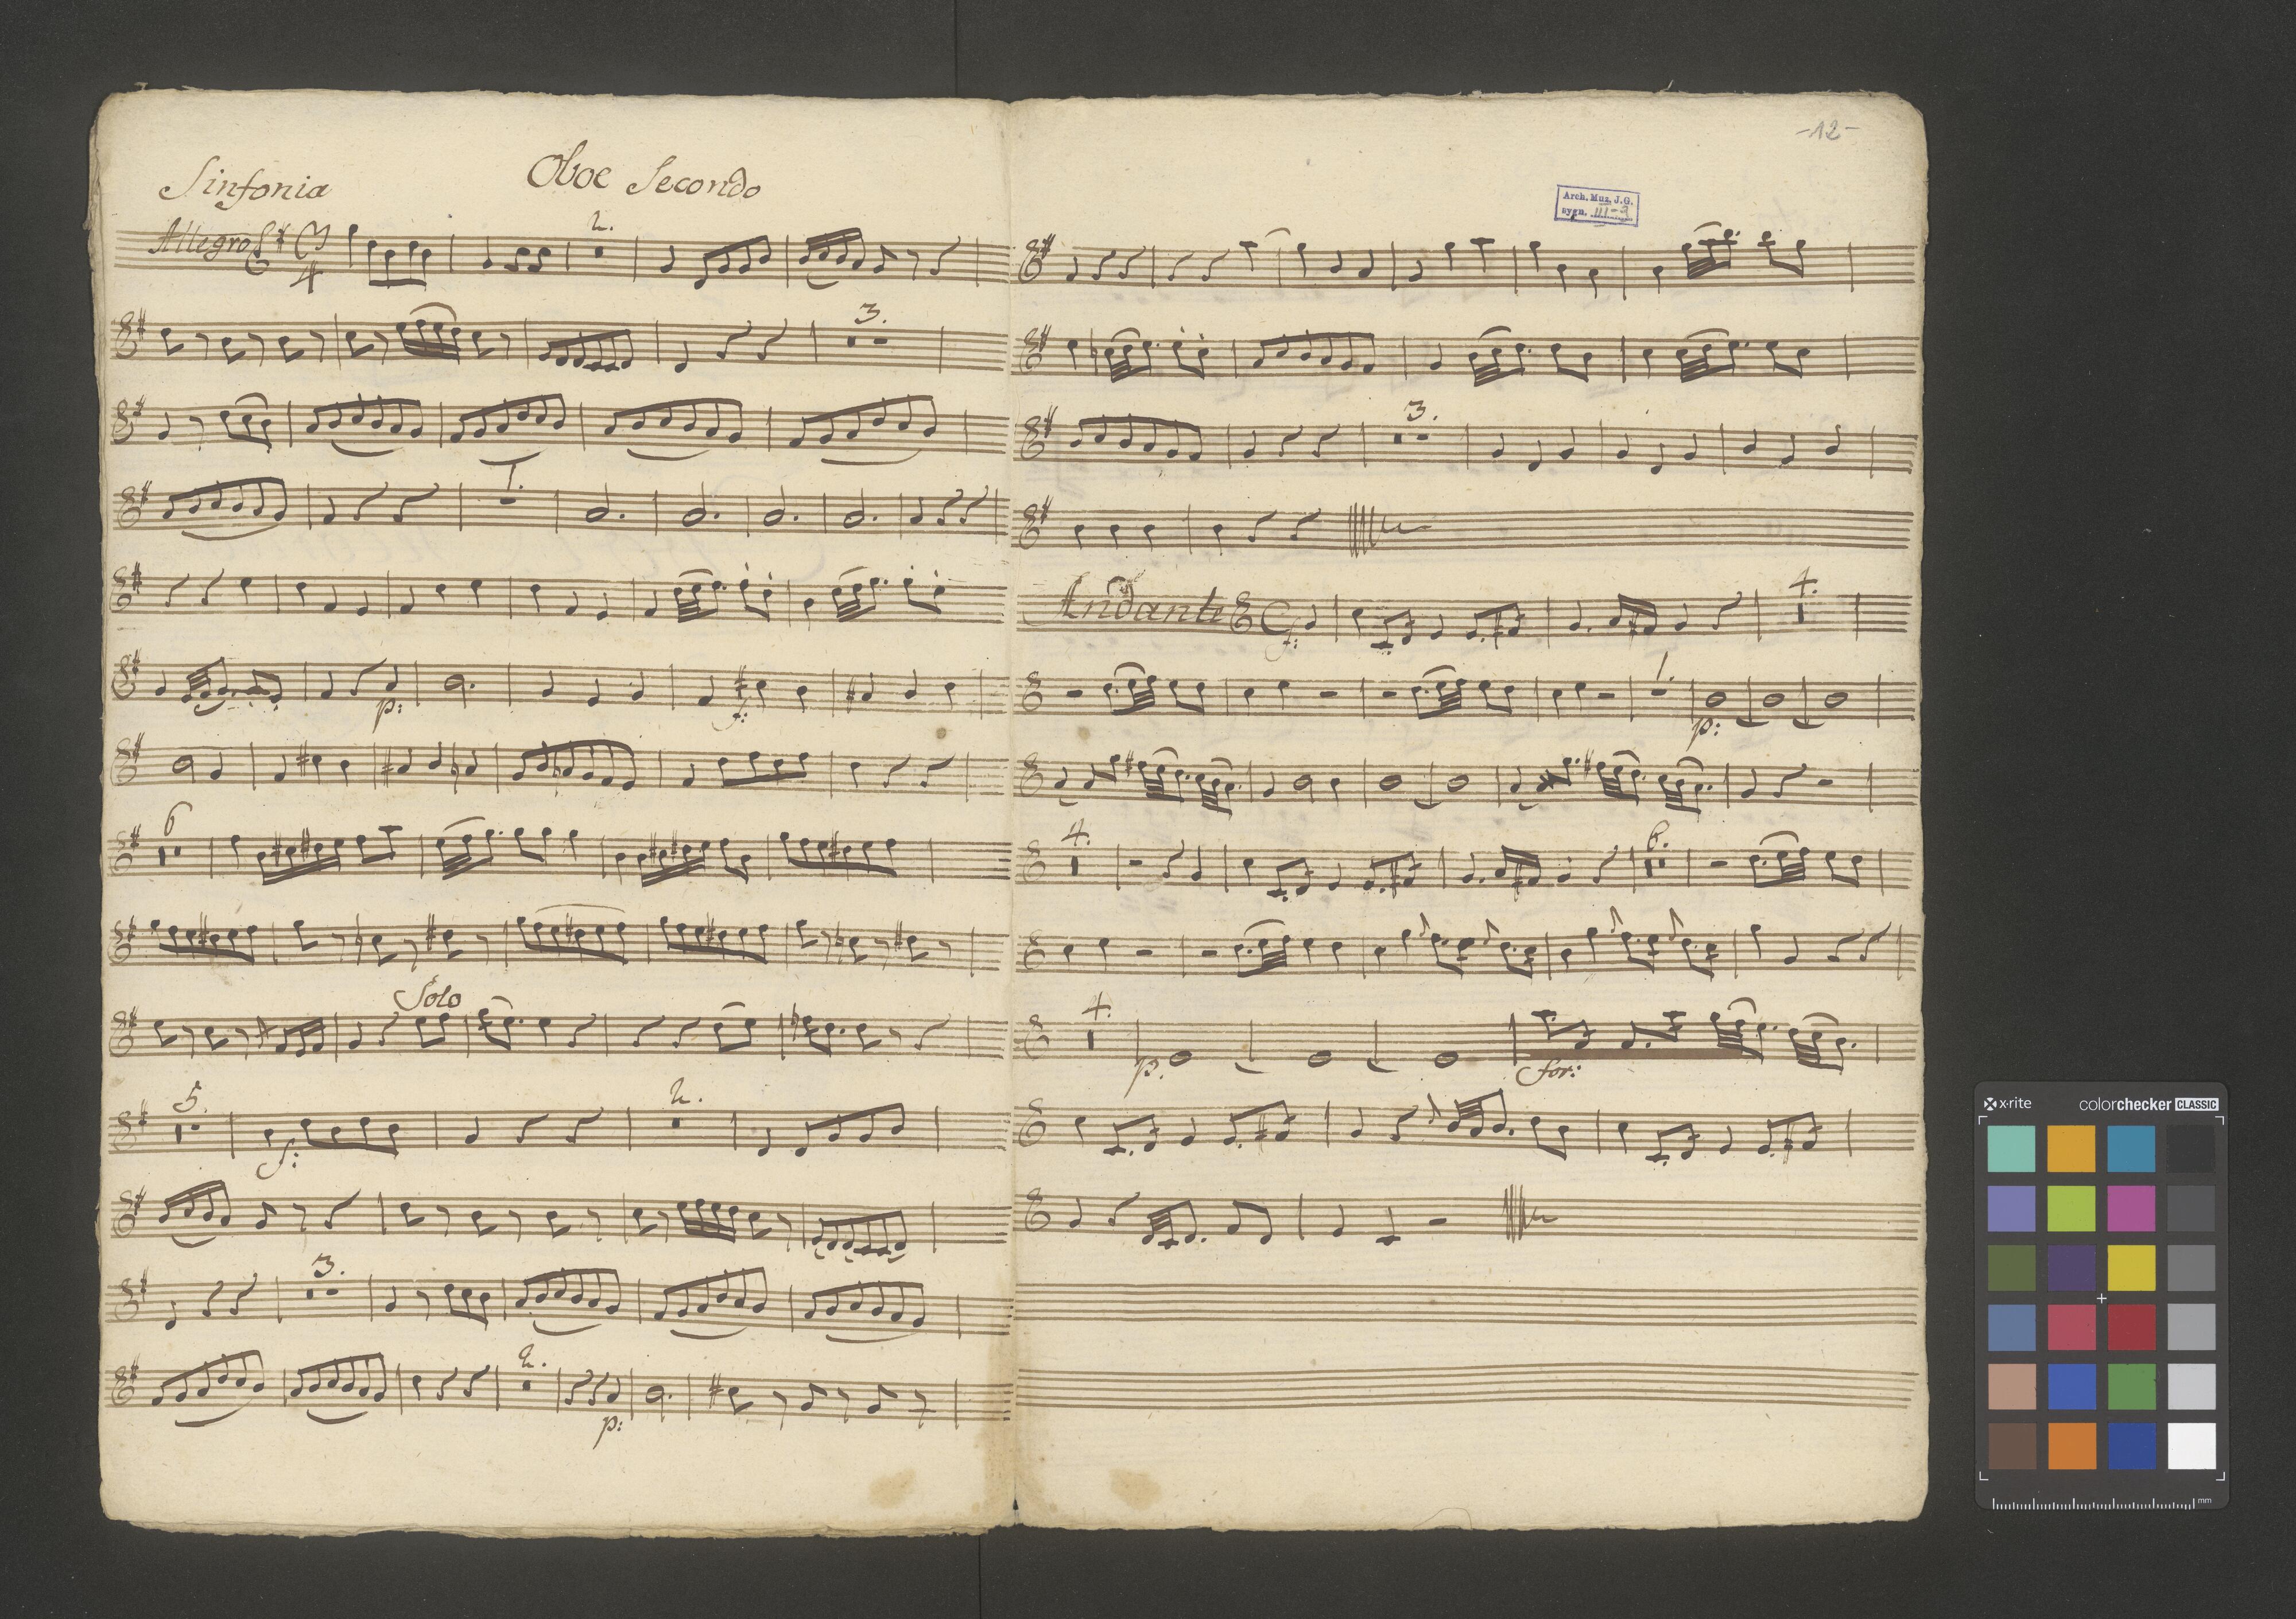 Sinfonia
Oboe Secondo
Allegro 3/4
2.
3.
1.
p:
f:
6
Solo
5.
2.
f:
3.
2.
p:
-12-
Arch. Muz. J.G.
sygn. III-3
3.
Andante C
f:
4.
1.
p:
4.
6.
4.
p.
for:
x-rite
colorchecker CLASSIC
mm